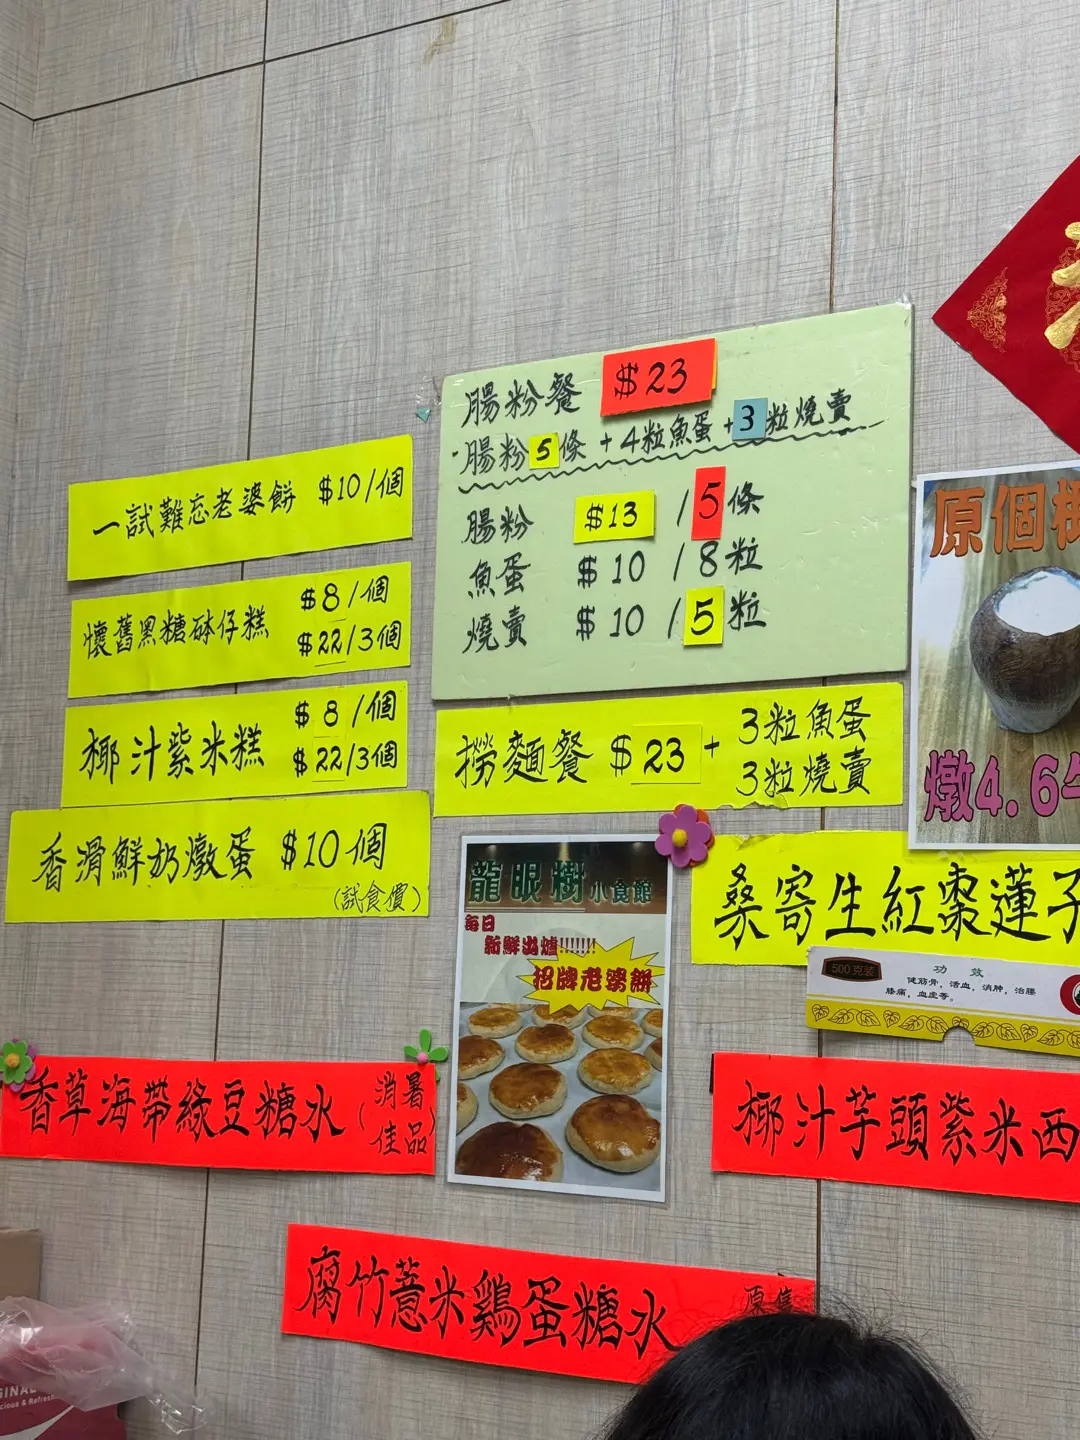 腸粉餐 $23
腸粉5條 + 4粒魚蛋 + 3粒燒賣
腸粉 $13 / 5條
魚蛋 $10 / 8粒
燒賣 $10 / 5粒
一試難忘老婆餅 $10/個
懷舊黑糖砵仔糕 $8/個
$22/3個
椰汁紫米糕 $8/個
$22/3個
香滑鮮奶燉蛋 $10個
(試食價)
撈麵餐 $23 + 3粒魚蛋
3粒燒賣
原個椰
燉4.6牛
龍眼樹小食館
每日
新鮮出爐!!!!!!!
招牌老婆餅
桑寄生紅棗蓮子
500克装
功 效
健筋骨，活血，消肿，治腰
膝痛，血虚等。
香草海帶綠豆糖水(消暑
佳品)
椰汁芋頭紫米西
腐竹薏米鷄蛋糖水